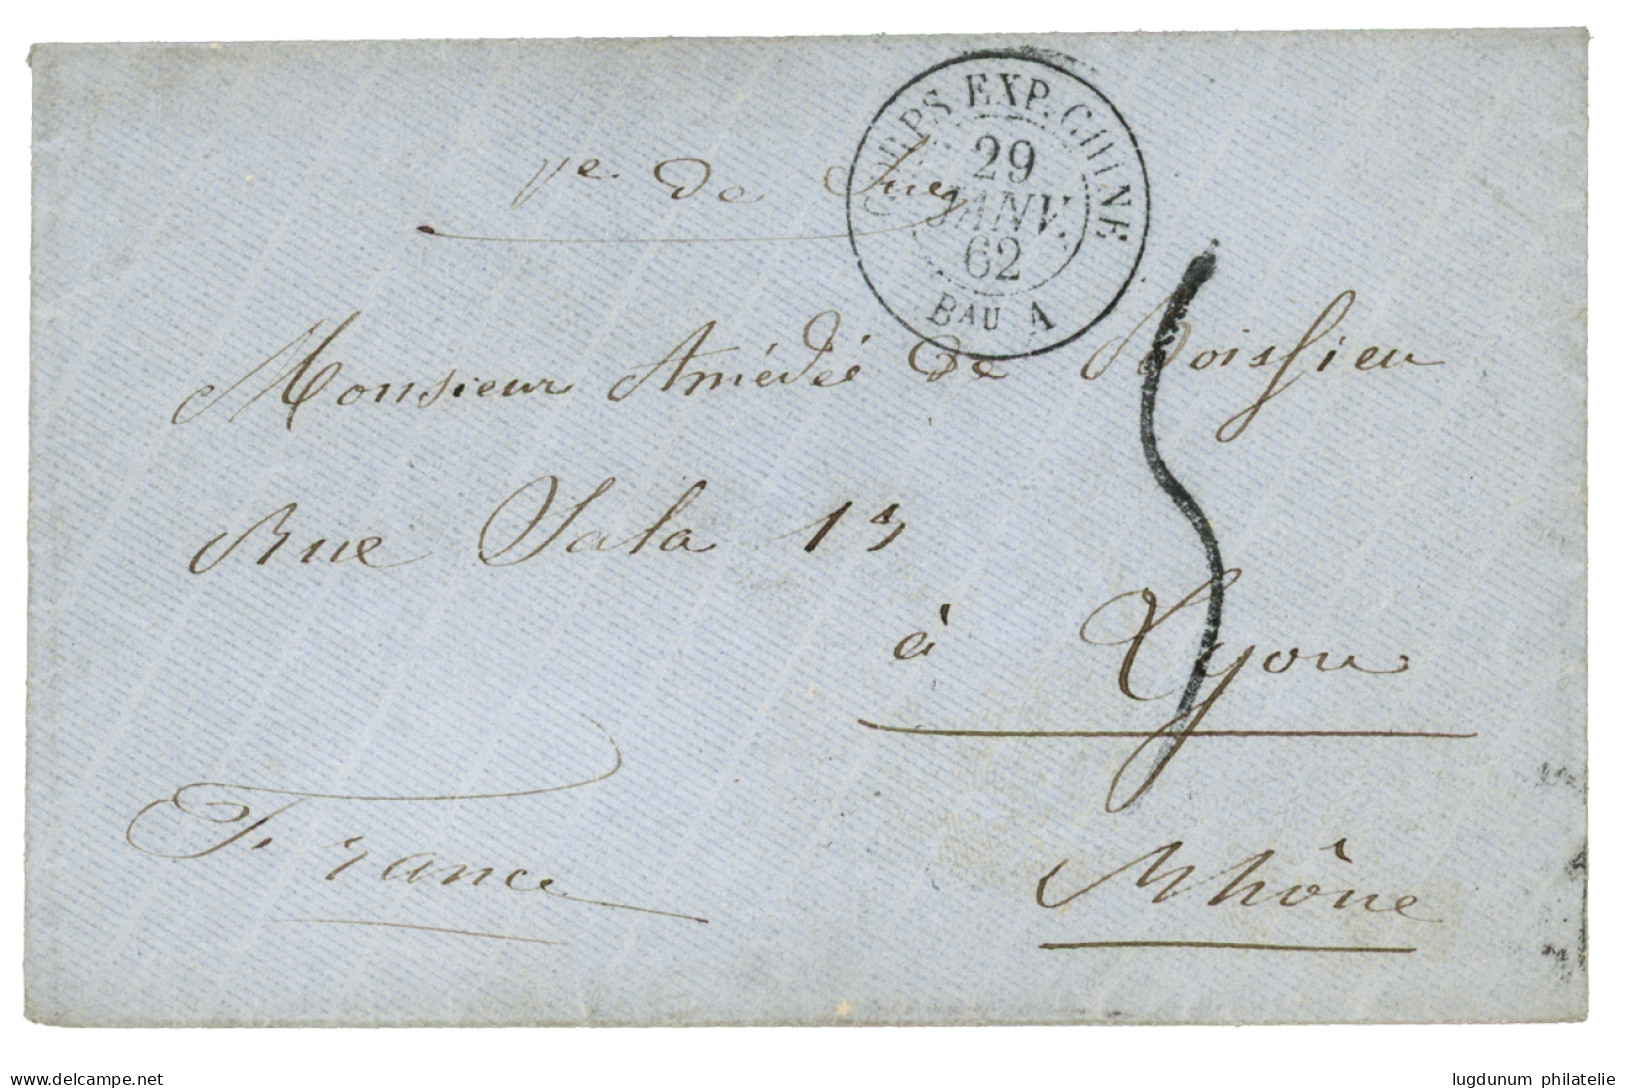 CORPS EXP. CHINE
29
JANV.
62
BAU A
Vᵉ de Suez
Monsieur Amédée de Boissieu
Rue Sala 13
à Lyon
Rhône
France
delcampe.net
lugdunum philatelie